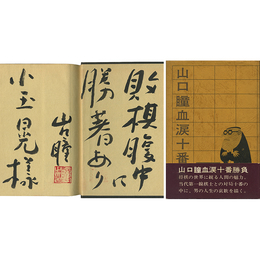 敗棋腹中に
勝着あり
山口瞳
小玉晃様
山口瞳血涙十番
山口瞳血涙十番勝負
将棋の世界に観る人間の魅力。
当代第一級棋士との対局十番の
中に、男の人生の哀歓を描く。